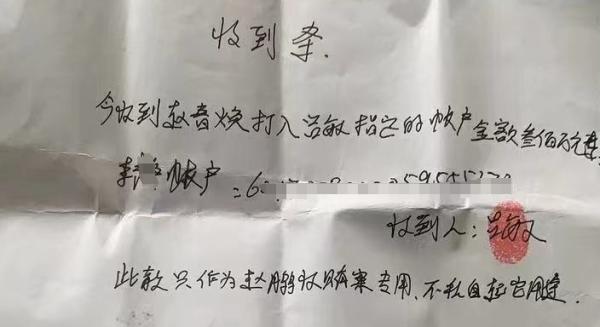 收到条.
今收到赵音焕打入吕敏指定的帐户金额叁佰万元整
李 帐户
:6
收到人:吕敏
此款只作为赵鹏权贿案专用、不私自起它用途.